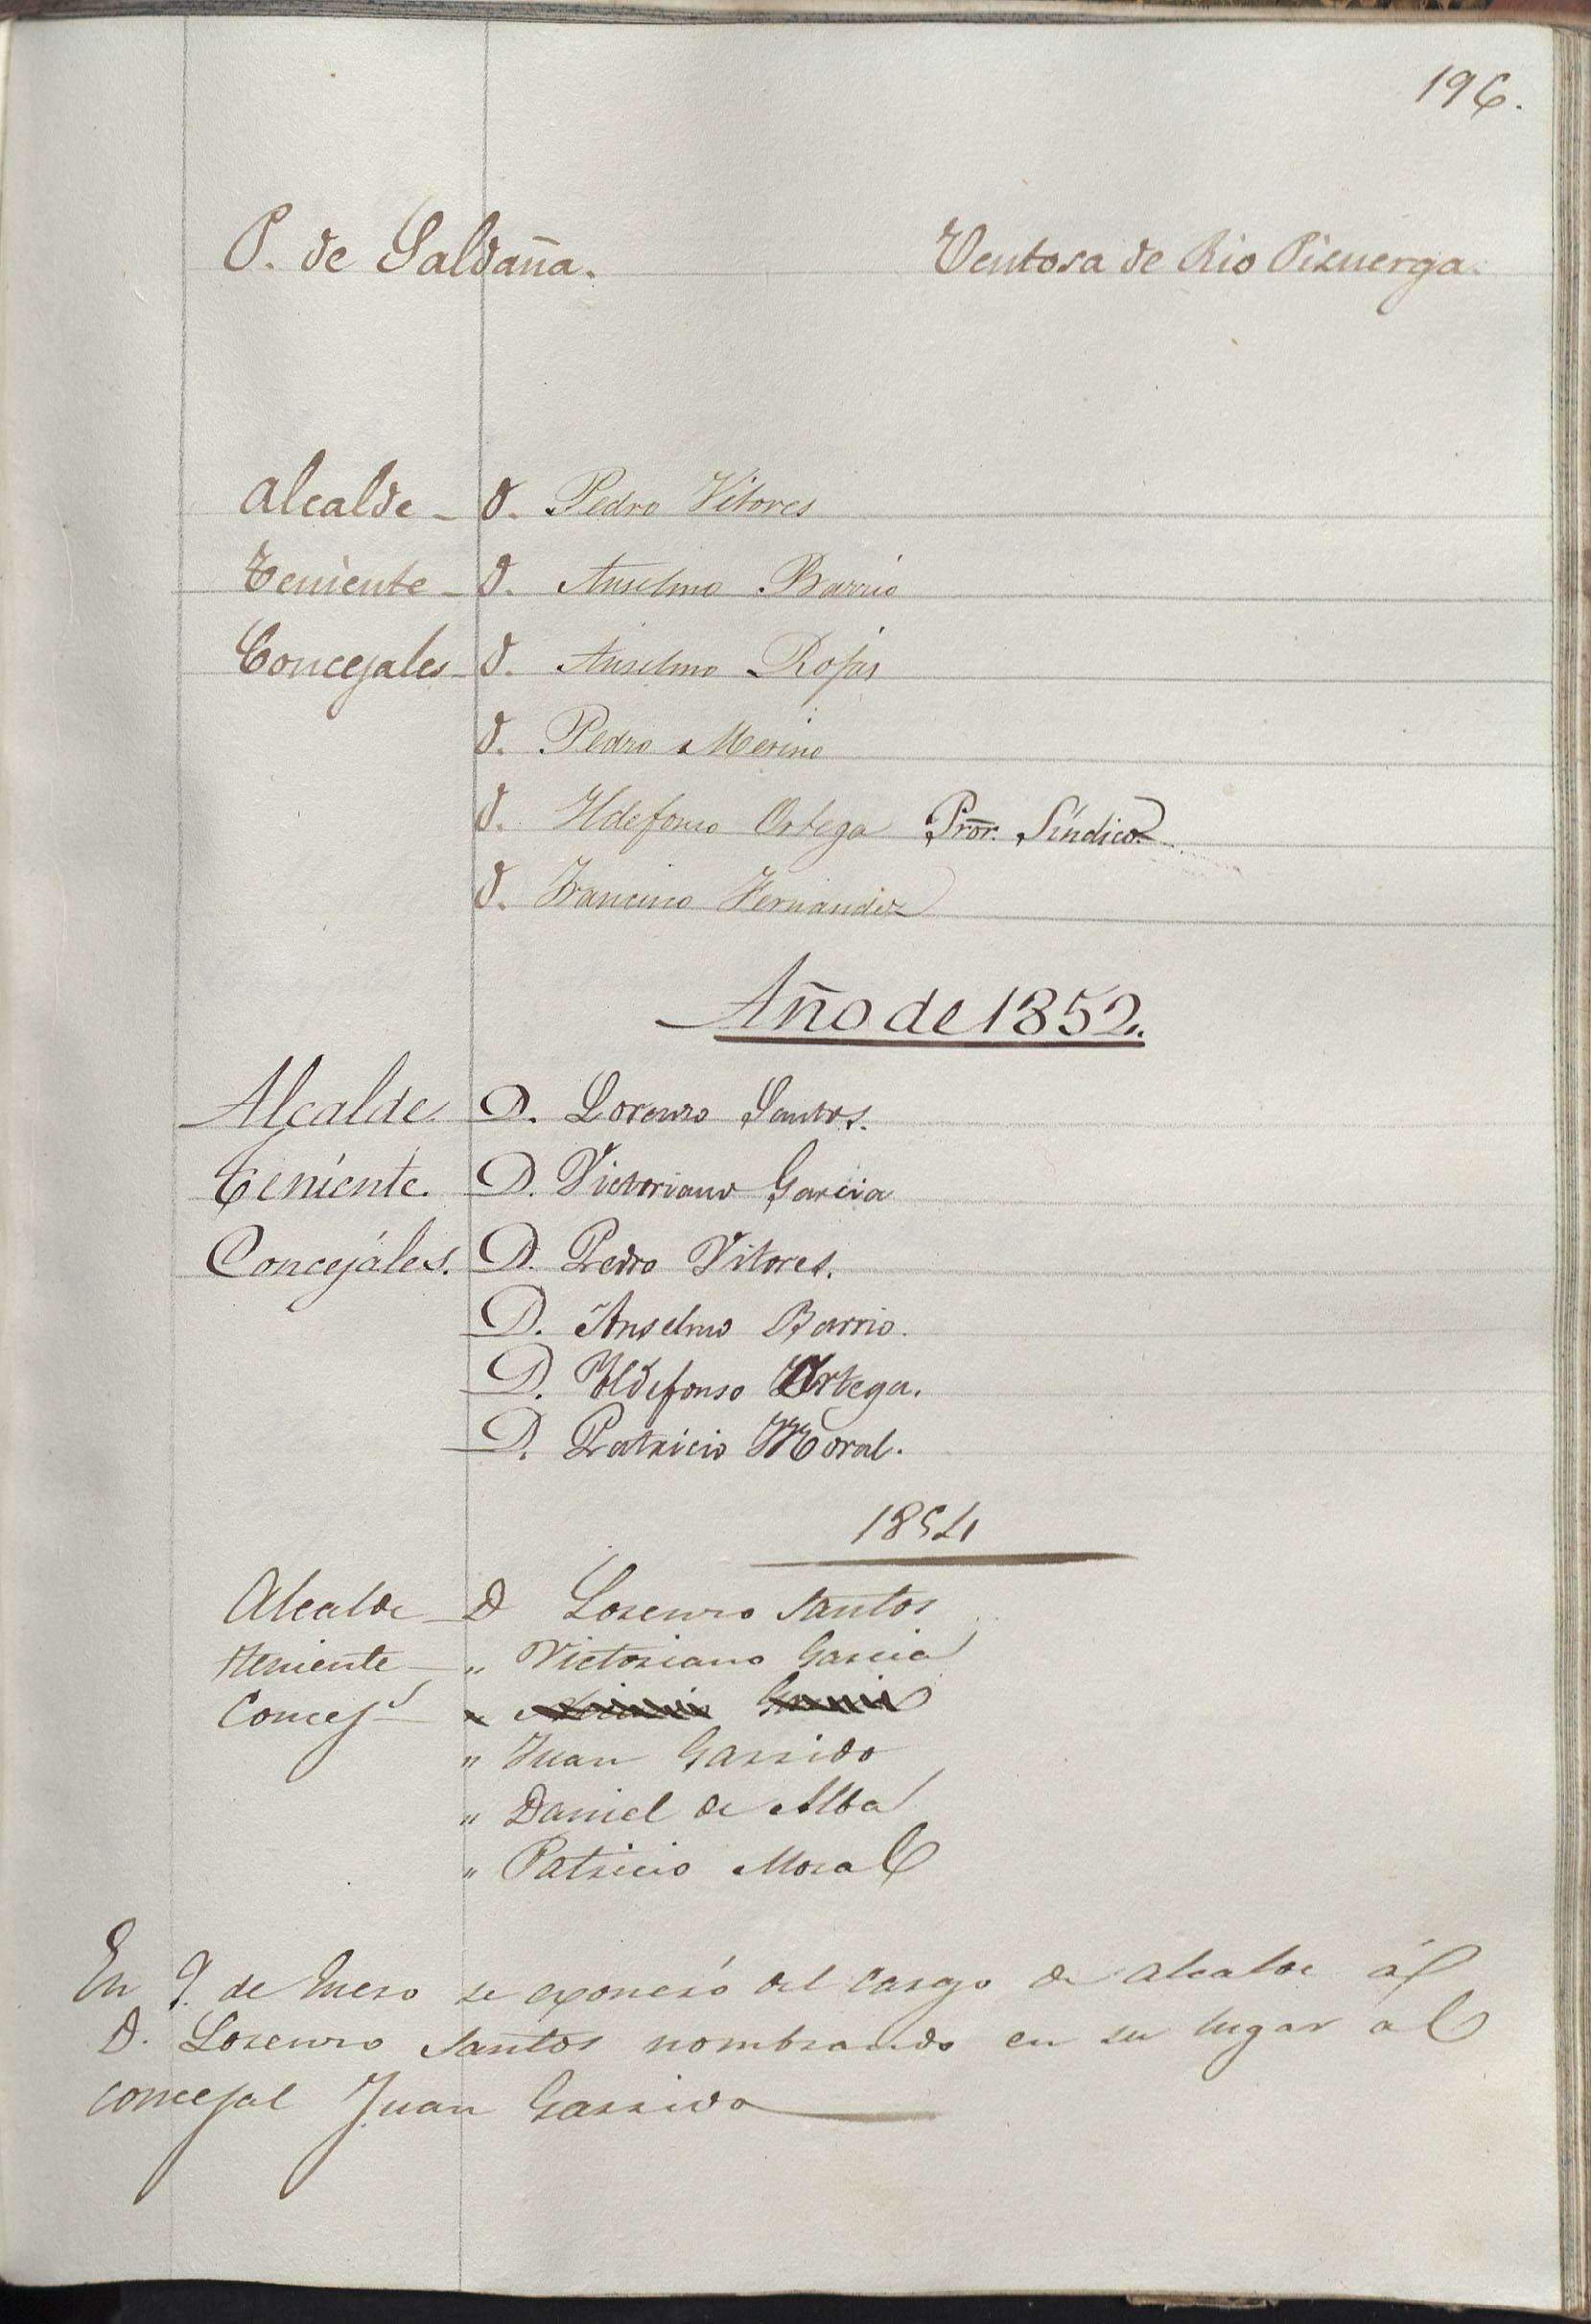 196.
P. de Saldaña. Ventosa de Rio Pisuerga.
Alcalde - D. Pedro Vitores
Teniente - D. Anselmo Barrio
Concejales - D. Anselmo Rojas
D. Pedro Merino
D. Yldefonso Ortega Pror. Síndico.
D. Francisco Fernandez
Año de 1852.
Alcalde D. Lorenzo Santos.
Teniente. D. Victoriano Garcia
Concejáles. D. Pedro Vitores.
D. Anselmo Barrio.
D. Yldefonso Ortega.
D. Patricio Moral.
1854
Alcalde D Lorenzo Santos
Teniente - " Victoriano Garcia
Concej.s -
" Juan Garrido
" Daniel de Alba
" Patricio Moral
En 9. de Enero se exoneró del cargo de alcalde ál
D. Lorenzo Santos nombrando en su lugar al
concejal Juan Garrido